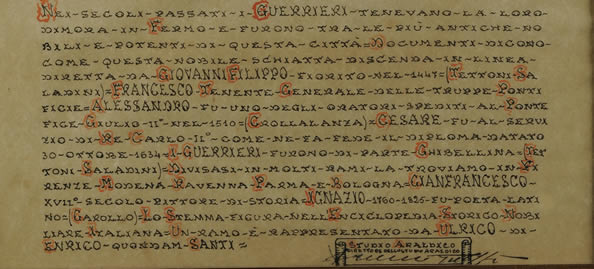 NEI-SECOLI-PASSATI-I-GUERRIERI-TENEVANO-LA-LORO-
DIMORA-IN-FERMO-E-FURONO-TRA-LE-PIÙ-ANTICHE-NO
BILI-E-POTENTI-DI-QUESTA-CITTÀ-DOCUMENTI-DICONO-
COME-QUESTA-NOBILE-SCHIATTA-DISCENDA-IN-LINEA-
DIRETTA-DA-GIOVANNI FILIPPO-FIORITO-NEL-1447=(TETTONI-SA
LADINI)=FRANCESCO-TENENTE-GENERALE-DELLE-TRUPPE-PONTI
FICIE=ALESSANDRO-FU-UNO-DEGLI-ORATORI-SPEDITI-AL-PONTE
FICE-GIULIO-IIº-NEL-1510=(CROLLALANZA)=CESARE-FU-AL-SERVI
ZIO-DI-RE-CARLO-IIº-COME-NE-FA-FEDE-IL-DIPLOMA-DATATO
30-OTTOBRE-1634=I-GUERRIERI-FURONO-DI-PARTE-GHIBELLINA=(TET
TONI-SALADINI)=DIVISASI-IN-MOLTI-RAMI-LA-TROVIAMO-IN-FI
RENZE-MODENA-RAVENNA-PARMA-E-BOLOGNA=GIANFRANCESCO-
XVIIº-SECOLO-PITTORE-DI-STORIA=IGNAZIO-1760-1825-FU-POETA-LATI
NO=(CAROLLO)=LO-STEMMA-FIGURA-NELL'ENCICLOPEDIA-STORICO-NOBI
LIARE-ITALIANA=UN-RAMO-È-RAPPRESENTATO-DA-ULRICO-DI-
ENRICO-QUONDAM-SANTI=
STUDIO ARALDICO